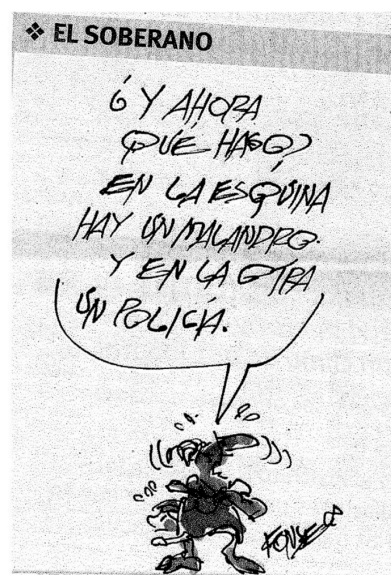 ❖ EL SOBERANO
¿Y AHORA
QUÉ HAGO?
EN LA ESQUINA
HAY UN MALANDRO.
Y EN LA OTRA
UN POLICÍA.
FONSECA